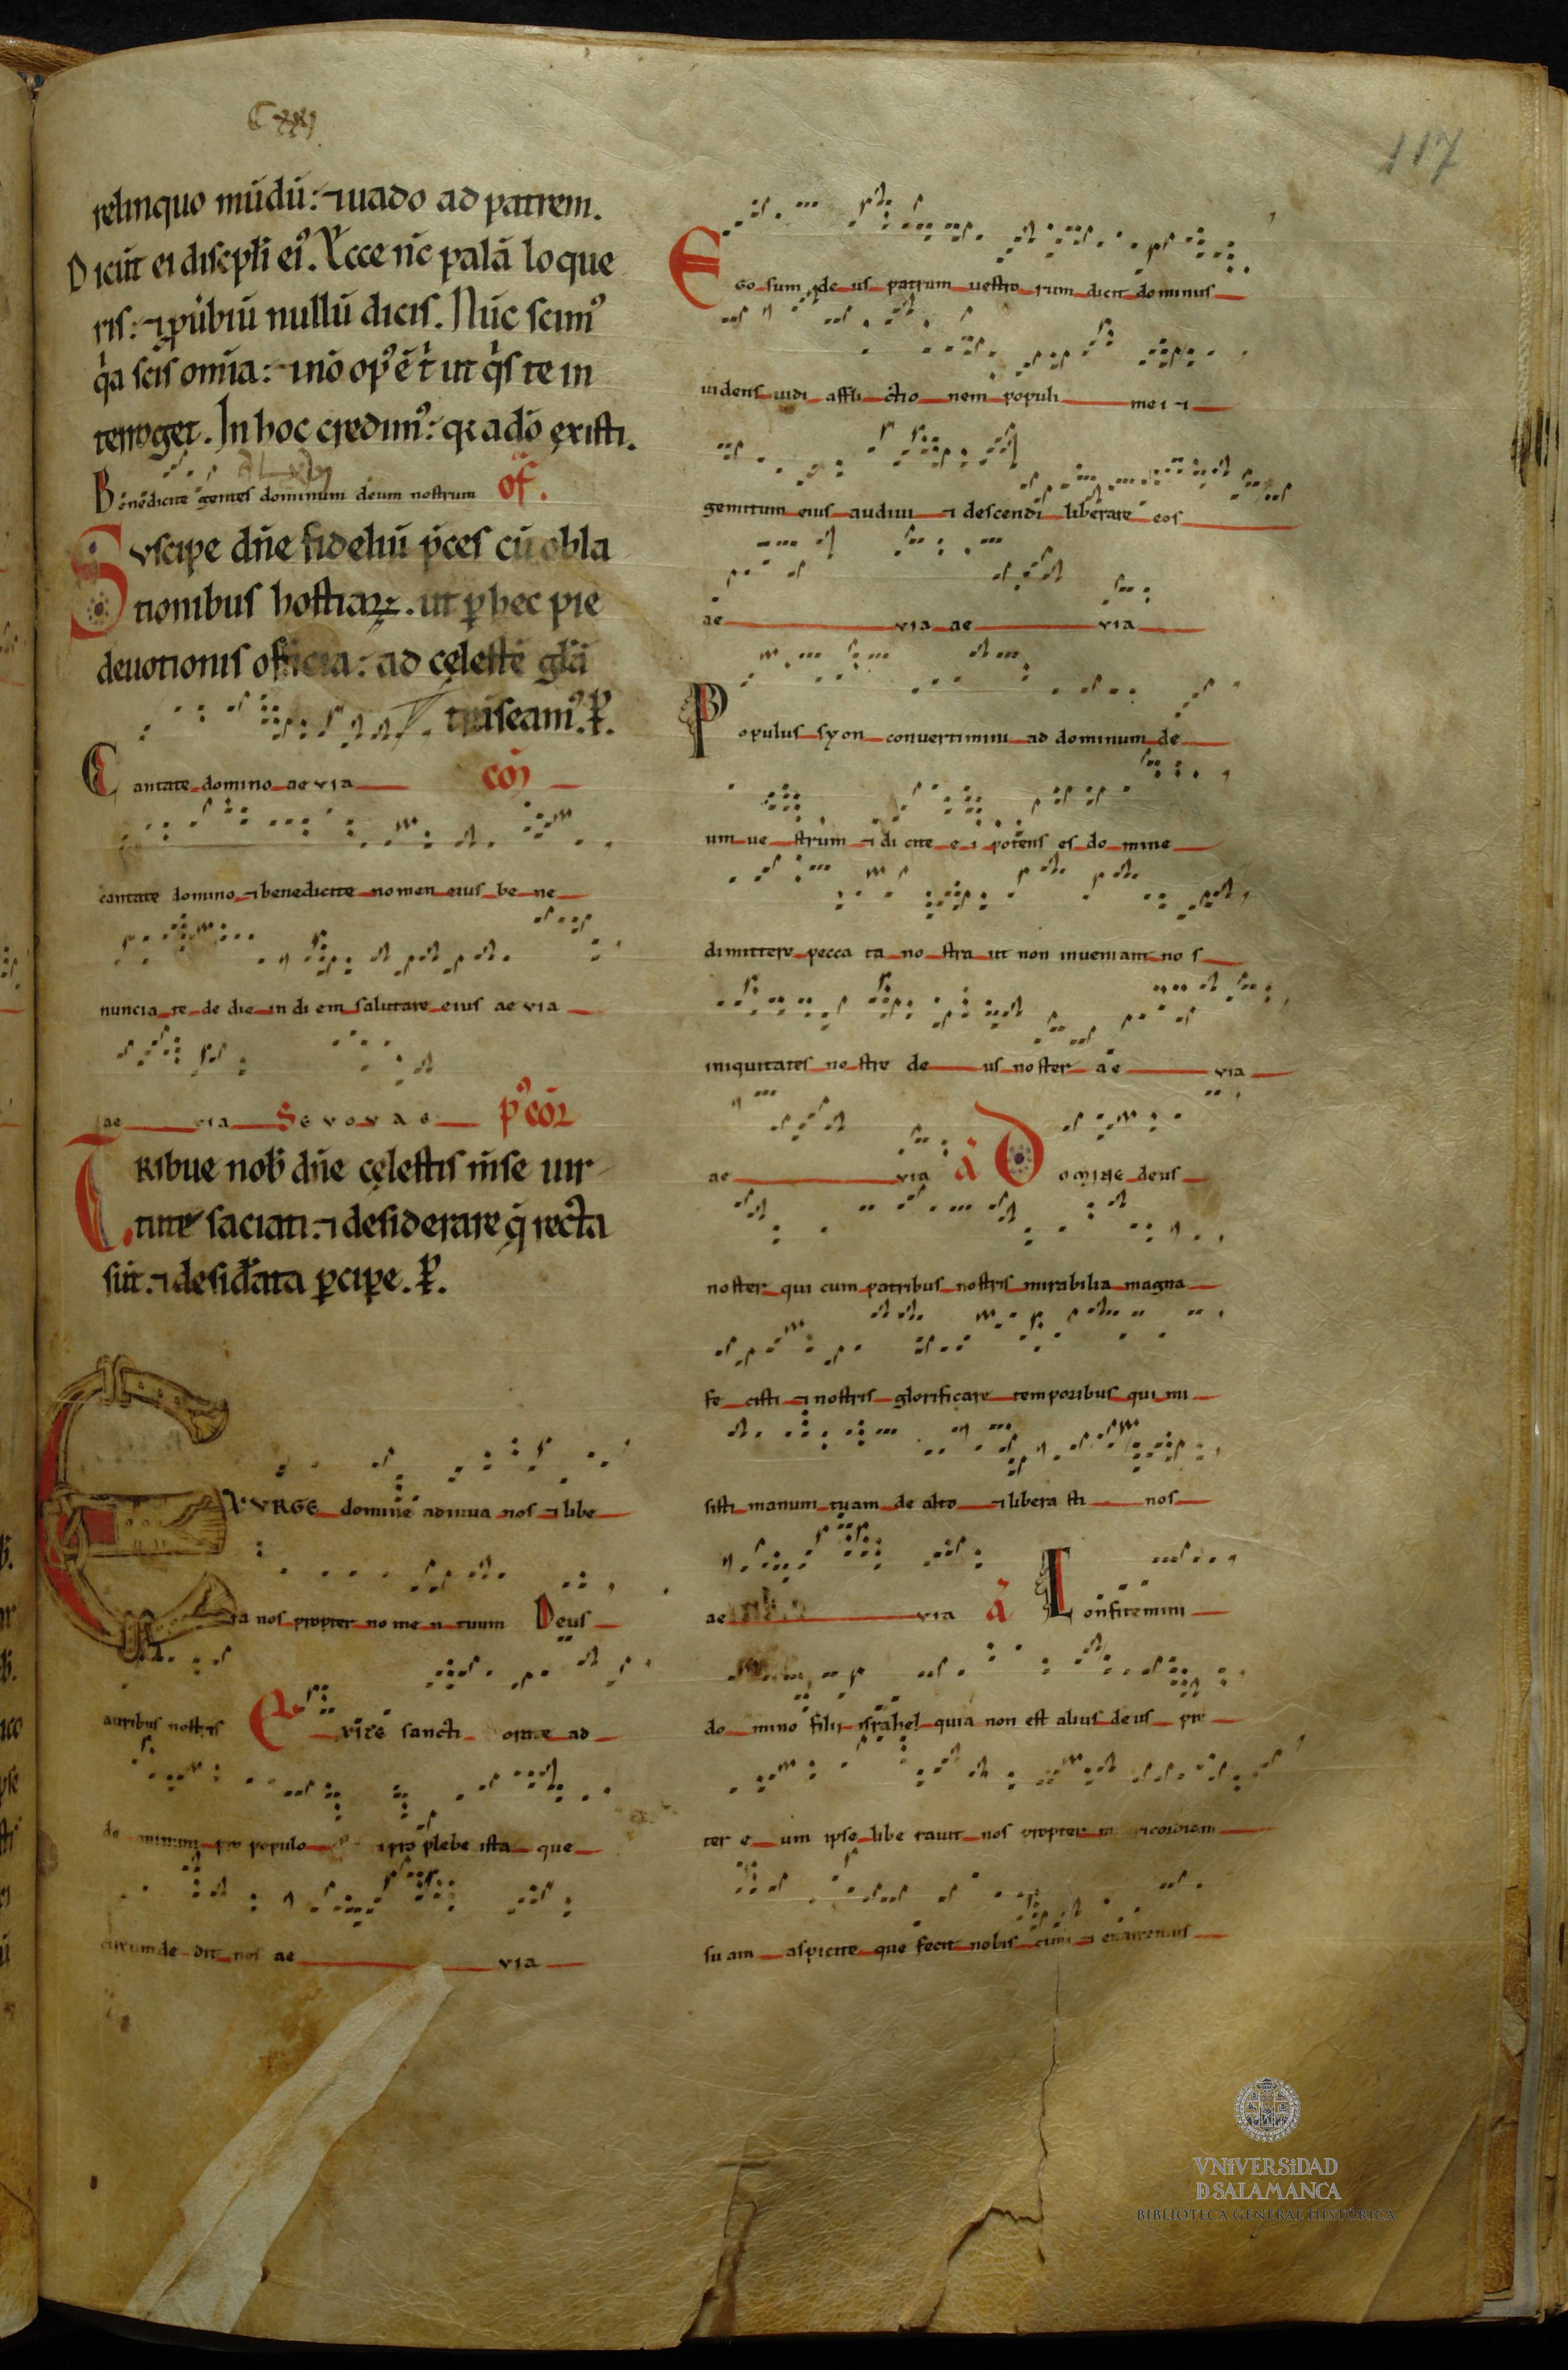 117
relinquo mũdũ: ⁊ uado ad patrem.
Dicũt ei discipłi ei⁹. Ecce nc̃ palã loque
ris: ⁊ puͥbiũ nullũ dicis. Nũc scim⁹
qͥa scis omĩa: ⁊ nõ op⁹ ẽ tͥ ut qͥs te in
terroget. In hoc credim⁹: qꝛ a dõ existi.
Benedicite gentes dominum deum nostrum of̃.
Suscipe dñe fideliũ p̃ces cũ obla
tionibus hostiaꝝ. ut ꝑ hec pie
deuotionis officia: ad cęlestẽ gl̃ã
trãseam⁹. ꝑ.
Cantate domino aevia com̃
cantate domino ⁊ benedicite nomen eius be ne
nuncia te de die in di em salutare eius aevia
ae via Sevovae p⁹ com̃
Tribue nob̃ dñe cęlestis m̃se uir
tute saciati. ⁊ desiderare q̃ recta
sũt. ⁊ desid̃ata ꝑcipe. ꝑ.
EXURGE domine adiuua nos ⁊ libe
ra nos propter no me n tuum Deus
auribus nostris Exite sancti orate ad
do minum pro populo ⁊ pro plebe ista que
circumde dit nos ae via
Ego sum de us patrum uestro rum dicit dominus
uidens uidi affli ctio nem populi mei ⁊
gemitum eius audiui ⁊ descendi liberare eos
ae via ae via
Populus syon conuertimini ad dominum de
um ue strum ⁊ di cite e i potens es do mine
dimittere pecca ta no stra ut non inueniant no s
iniquitates no stre de us noster ae via
ae via ã Domine deus
noster qui cum patribus nostris mirabilia magna
fe cisti ⁊ nostris glorificare temporibus qui mi
sisti manum tuam de alto ⁊ libera sti nos
ae via ã Confitemini
do mino filii israhel quia non est alius deus pre
ter e um ipse libe rauit nos propter
su am aspicite que fecit nobis cum ⁊ enarremus
VNIVERSIDAD
D SALAMANCA
BIBLIOTECA GENERAL HISTÓRICA